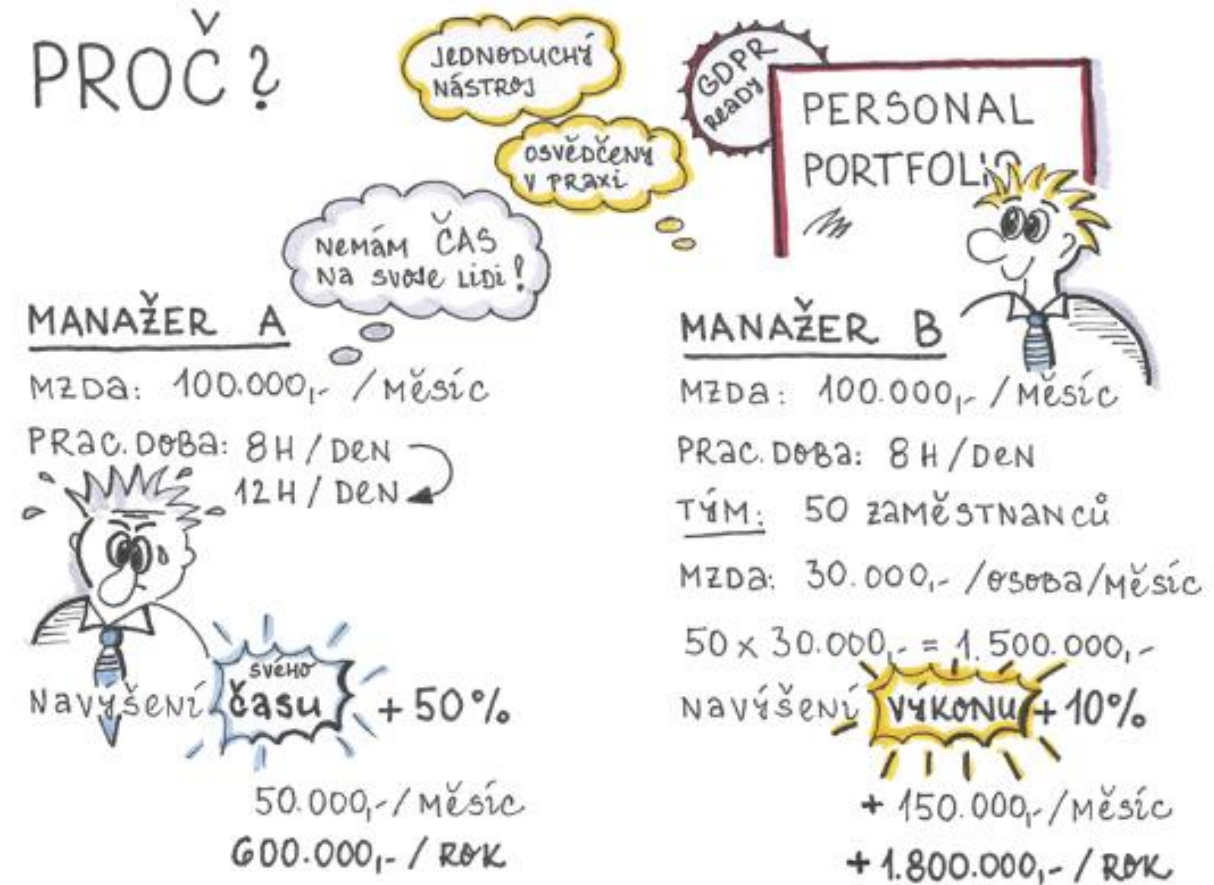 PROČ?
JEDNODUCHÝ
NÁSTROJ
OSVĚDČENÝ
V PRAXI
GDPR
READY
PERSONAL
PORTFOLIO
NEMÁM ČAS
NA SVOJE LIDI!
MANAŽER A
MZDA: 100.000,- / MĚSÍC
PRAC. DOBA: 8H / DEN
12H / DEN
NAVÝŠENÍ SVÉHO ČASU +50%
50.000,- / MĚSÍC
600.000,- / ROK
MANAŽER B
MZDA: 100.000,- / MĚSÍC
PRAC. DOBA: 8H / DEN
TÝM: 50 ZAMĚSTNANCŮ
MZDA: 30.000,- /OSOBA/MĚSÍC
50 x 30.000,- = 1.500.000,-
NAVÝŠENÍ VÝKONU +10%
+ 150.000,- / MĚSÍC
+ 1.800.000,- / ROK